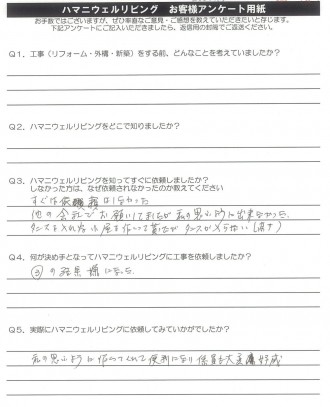 ハマニウェルリビング お客様アンケート用紙
お手数ではございますが、ぜひ率直なご意見・ご感想を教えていただきたいと存じます。
下記アンケートにご記入いただきましたら、返信用の封筒でご返送ください。
Q1. 工事（リフォーム・外構・新築）をする前、どんなことを考えていましたか？
Q2. ハマニウェルリビングをどこで知りましたか？
Q3. ハマニウェルリビングを知ってすぐに依頼しましたか？
しなかった方は、なぜ依頼されなかったのか教えてください
すぐは依頼はしなかった
他の会社でお願いしてましたが私の思ふように出来なかった
タンスを入れる
タンスが入らない
Q4. 何が決め手となってハマニウェルリビングに工事を依頼しましたか？
③の結果
Q5. 実際にハマニウェルリビングに依頼してみていかがでしたか？
私の思ふように作ってくれて便利になり